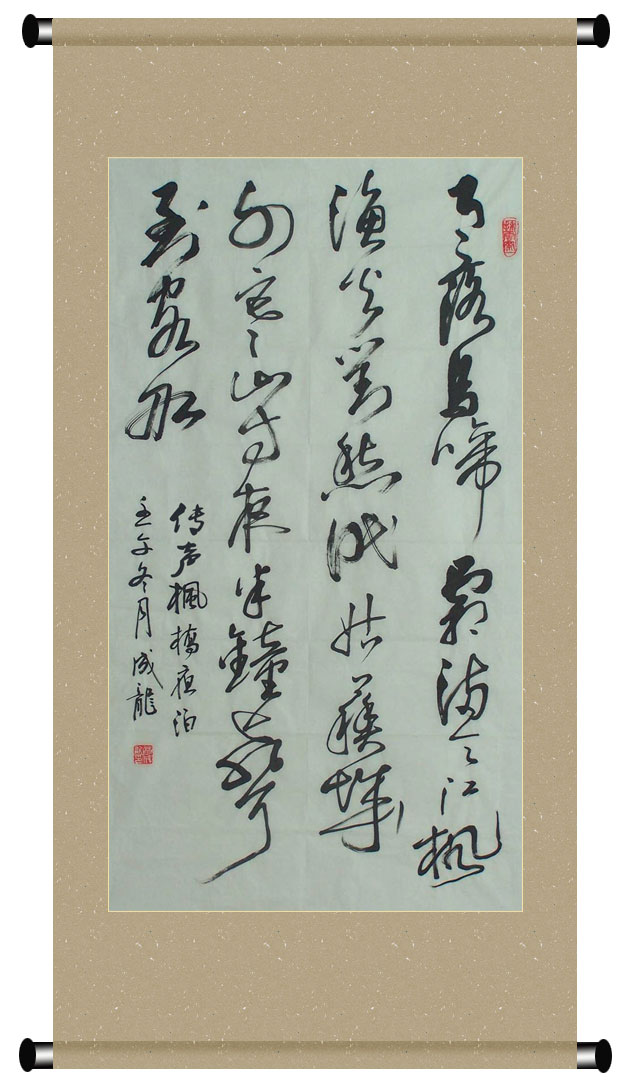 月落烏啼霜滿天江楓
漁火對愁眠姑蘇城
外寒山寺夜半鐘聲
到客船
传声楓橋夜泊
壬午冬月成龍